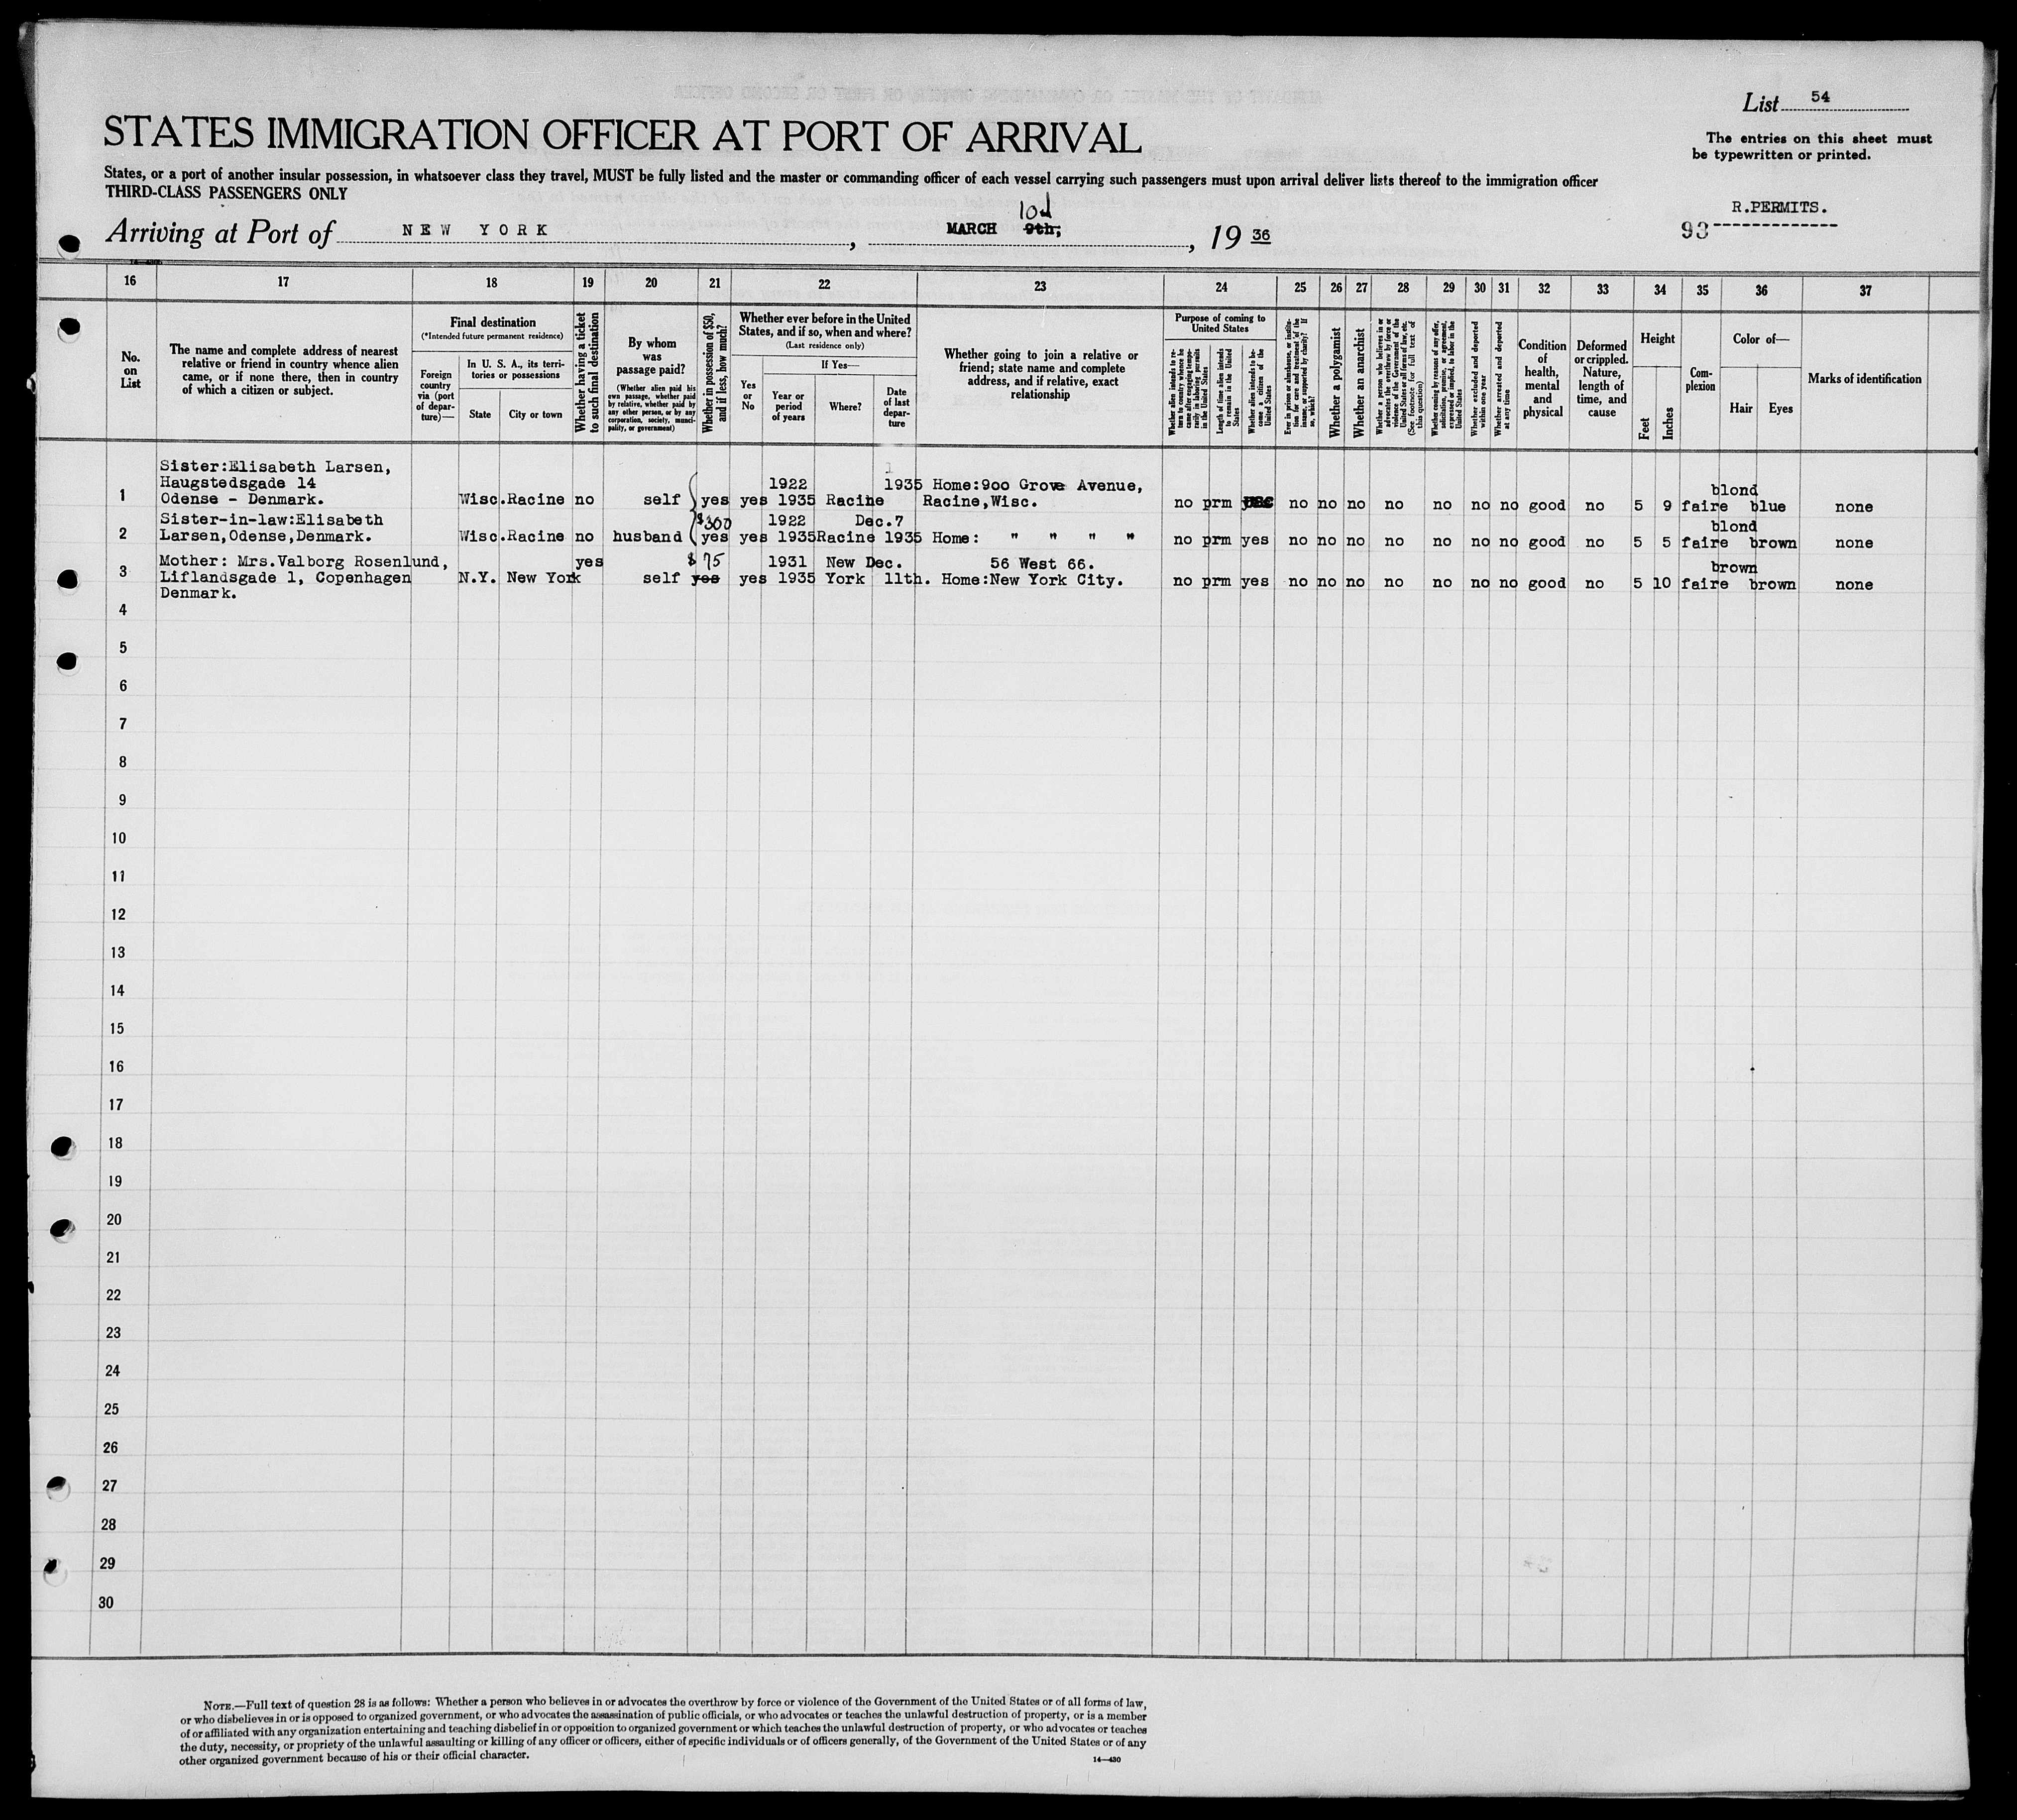 List 54
STATES IMMIGRATION OFFICER AT PORT OF ARRIVAL
The entries on this sheet must
be typewritten or printed.
States, or a port of another insular possession, in whatsoever class they travel, MUST be fully listed and the master or commanding officer of each vessel carrying such passengers must upon arrival deliver lists thereof to the immigration officer
THIRD-CLASS PASSENGERS ONLY
R.PERMITS.
93
10th
Arriving at Port of NEW YORK, MARCH 9th;, 19 36
16 17 18 19 20 21 22 23 24 25 26 27 28 29 30 31 32 33 34 35 36 37
No.
on
List
The name and complete address of nearest
relative or friend in country whence alien
came, or if none there, then in country
of which a citizen or subject.
Final destination
(*Intended future permanent residence)
Foreign
country
via (port
of depar-
ture)—
In U. S. A., its terri-
tories or possessions
State City or town
Whether having a ticket
to such final destination
By whom
was
passage paid?
(Whether alien paid his
own passage, whether paid
by relative, whether paid by
any other person, or by any
corporation, society, munici-
pality, or government)
Whether in possession of $50,
and if less, how much?
Whether ever before in the United
States, and if so, when and where?
(Last residence only)
Yes
or
No
If Yes—
Year or
period
of years
Where?
Date
of last
depar-
ture
Whether going to join a relative or
friend; state name and complete
address, and if relative, exact
relationship
Purpose of coming to
United States
Whether alien intends to re-
turn to country whence he
came after engaging tempo-
rarily in laboring pursuits
in the United States
Length of time alien intends
to remain in the United
States
Whether alien intends to be-
come a citizen of the
United States
Ever in prison or almshouse, or institu-
tion for care and treatment of the
insane, or supported by charity? If
so, which?
Whether a polygamist
Whether an anarchist
Whether a person who believes in or
advocates the overthrow by force or
violence of the Government of the
United States or all forms of law, etc.
(See footnote for full text of
this question)
Whether coming by reasons of any offer,
solicitation, promise, or agreement,
expressed or implied, to labor in the
United States
Whether excluded and deported
within one year
Whether arrested and deported
at any time
Condition
of
health,
mental
and
physical
Deformed
or crippled.
Nature,
length of
time, and
cause
Height
Feet Inches
Com-
plexion
Color of—
Hair Eyes
Marks of identification
Sister:Elisabeth Larsen,
Haugstedsgade 14 1922 1935 Home:900 Grove Avenue, blond
1 Odense - Denmark. Wisc. Racine no self yes yes 1935 Racine Racine,Wisc. no prm no no no no no no no good no 5 9 faire blue none
Sister-in-law:Elisabeth $300 1922 Dec.7 blond
2 Larsen,Odense,Denmark. Wisc. Racine no husband yes yes 1935 Racine 1935 Home: " " " " no prm yes no no no no no no no good no 5 5 faire brown none
Mother: Mrs.Valborg Rosenlund, yes $75 1931 New Dec. 56 West 66. brown
3 Liflandsgade 1, Copenhagen N.Y. New York self yes yes 1935 York 11th. Home:New York City. no prm yes no no no no no no no good no 5 10 faire brown none
Denmark.
4
5
6
7
8
9
10
11
12
13
14
15
16
17
18
19
20
21
22
23
24
25
26
27
28
29
30
NOTE.—Full text of question 28 is as follows: Whether a person who believes in or advocates the overthrow by force or violence of the Government of the United States or of all forms of law,
or who disbelieves in or is opposed to organized government, or who advocates the assassination of public officials, or who advocates or teaches the unlawful destruction of property, or is a member
of or affiliated with any organization entertaining and teaching disbelief in or opposition to organized government or which teaches the unlawful destruction of property, or who advocates or teaches
the duty, necessity, or propriety of the unlawful assaulting or killing of any officer or officers, either of specific individuals or of officers generally, of the Government of the United States or of any
other organized government because of his or their official character.
14—430